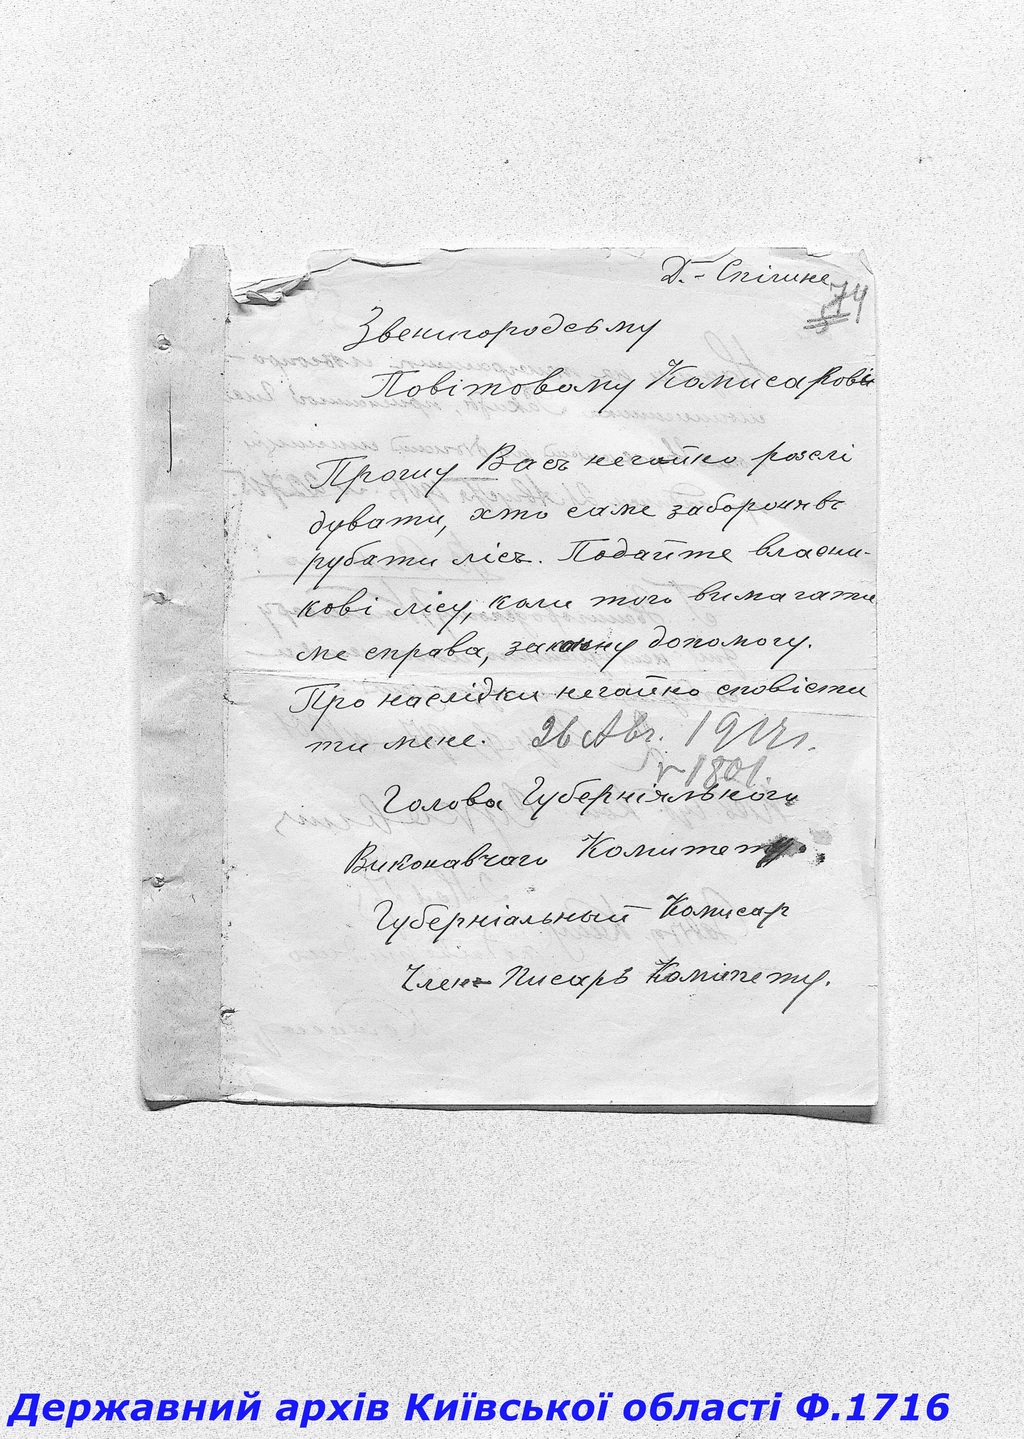 Д.-Спічине
74
Звенигородсьму
Повітовому Комисарові
Прошу Васъ негайно розслі
дувати, хто саме заборонив
рубати лісъ. Подайте власни-
кові лісу, коли того вимагати
ме справа, законну допомогу.
Про наслідки негайно сповісти
ти мене. 26 Авг. 1917 г.
№ 1801.
Голова Губерніяльного
Виконавчаго Комитету.
Губерніальный Комисар
Член Писаръ Комітету.
Державний архів Київської області Ф.1716